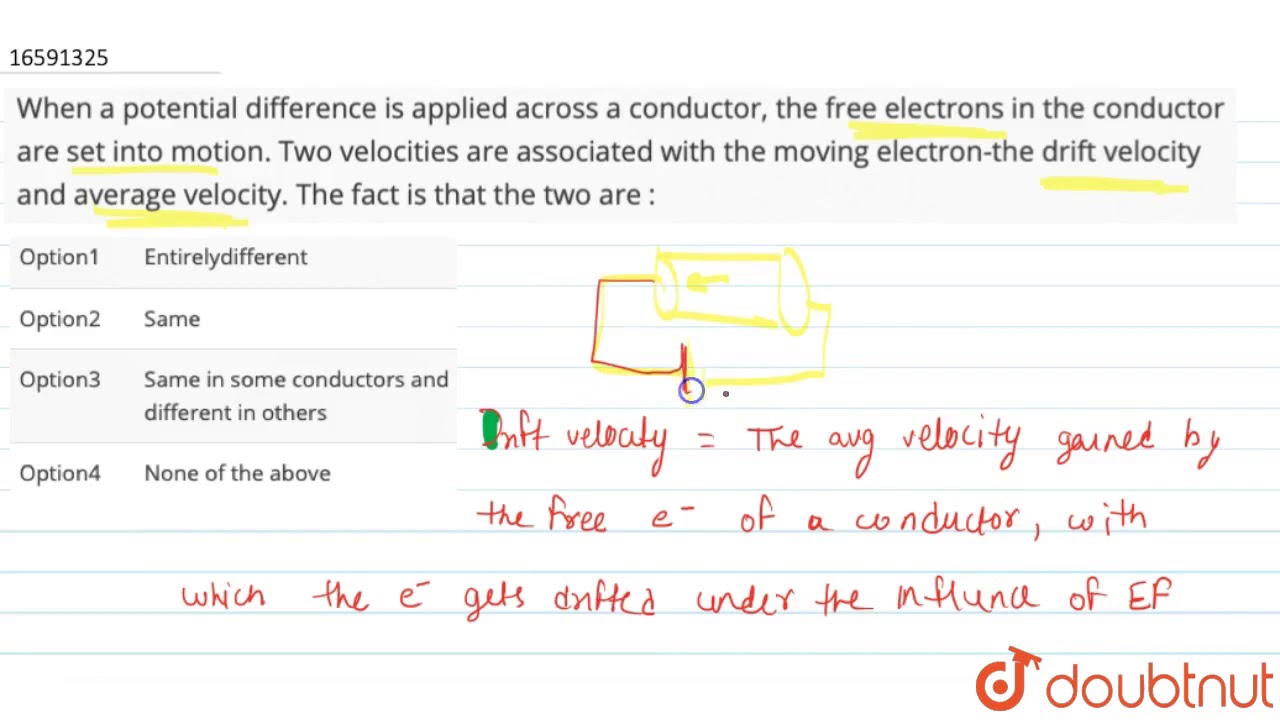 16591325
When a potential difference is applied across a conductor, the free electrons in the conductor
are set into motion. Two velocities are associated with the moving electron-the drift velocity
and average velocity. The fact is that the two are :
Option1 Entirelydifferent
Option2 Same
Option3 Same in some conductors and
different in others
Option4 None of the above
Drift velocity = The avg velocity gained by
the free e⁻ of a conductor, with
which the e⁻ gets drifted under the influence of EF
doubtnut